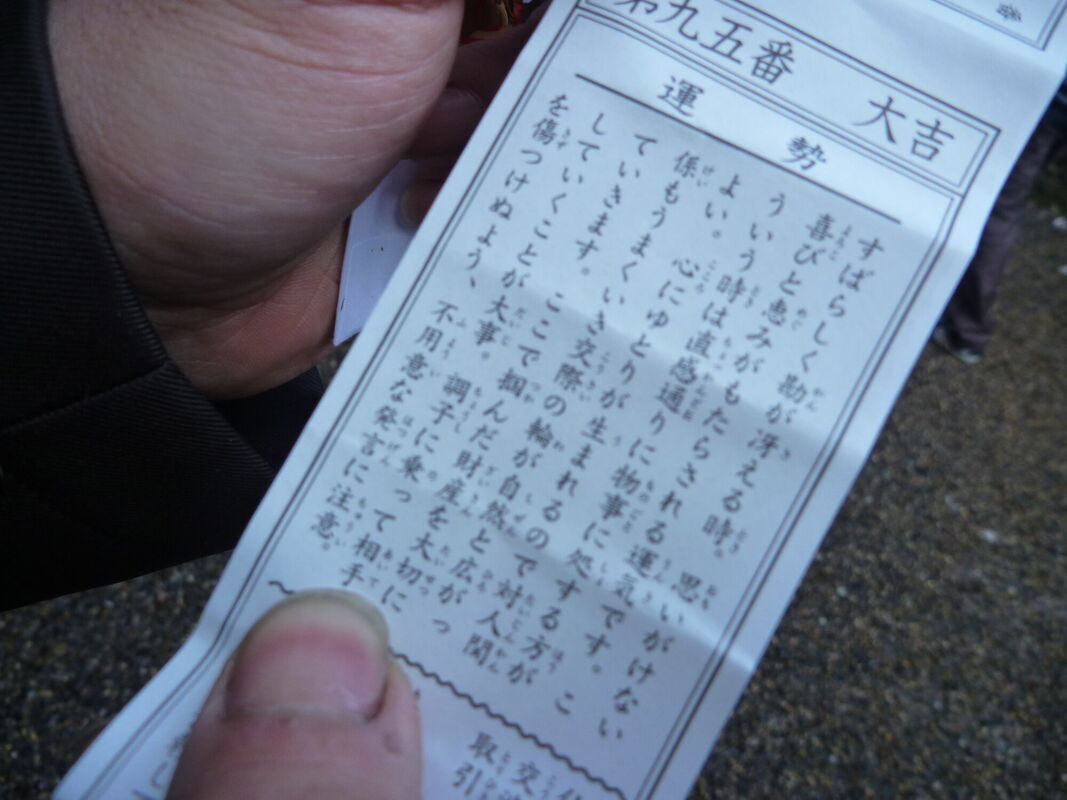 第九五番　大吉
運勢
すばらしく勘が冴える時。　思いがけない
喜びと恵みがもたらされる運気です。こ
ういう時は直感通りに物事に処する方が
よい。　心にゆとりが生まれるので対人関
係もうまくいき交際の輪が自然と広がっ
ていきます。　ここで掴んだ財産を大切に
していくことが大事。　調子に乗って相手
を傷つけぬよう、　不用意な発言に注意。
交
取引